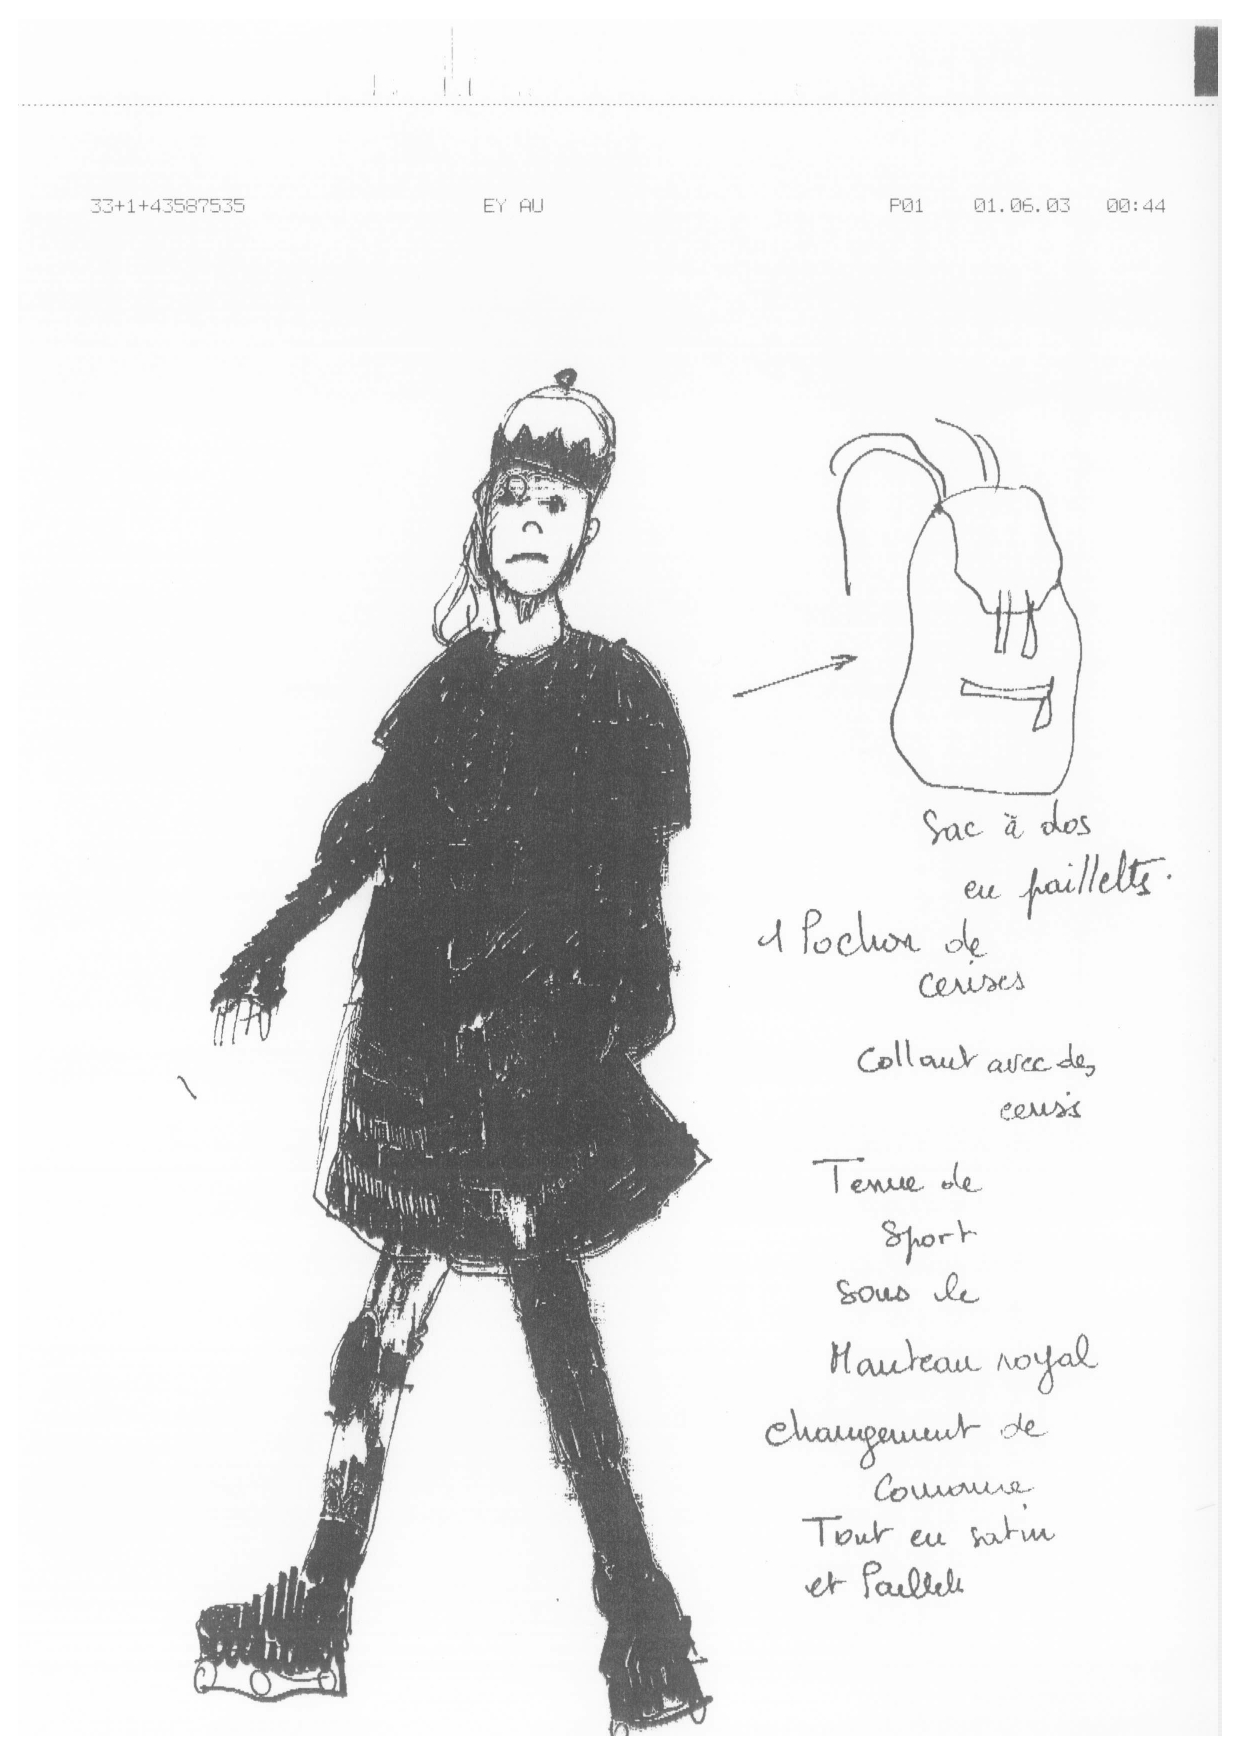 33+1+43587535 EY AU P01 01.06.03 00:44
Sac à dos
en paillettes.
1 Pochon de
cerises
Collant avec des
cerises
Tenue de
Sport
sous le
Manteau royal
changement de
Couronne
Tout en satin
et Paillette